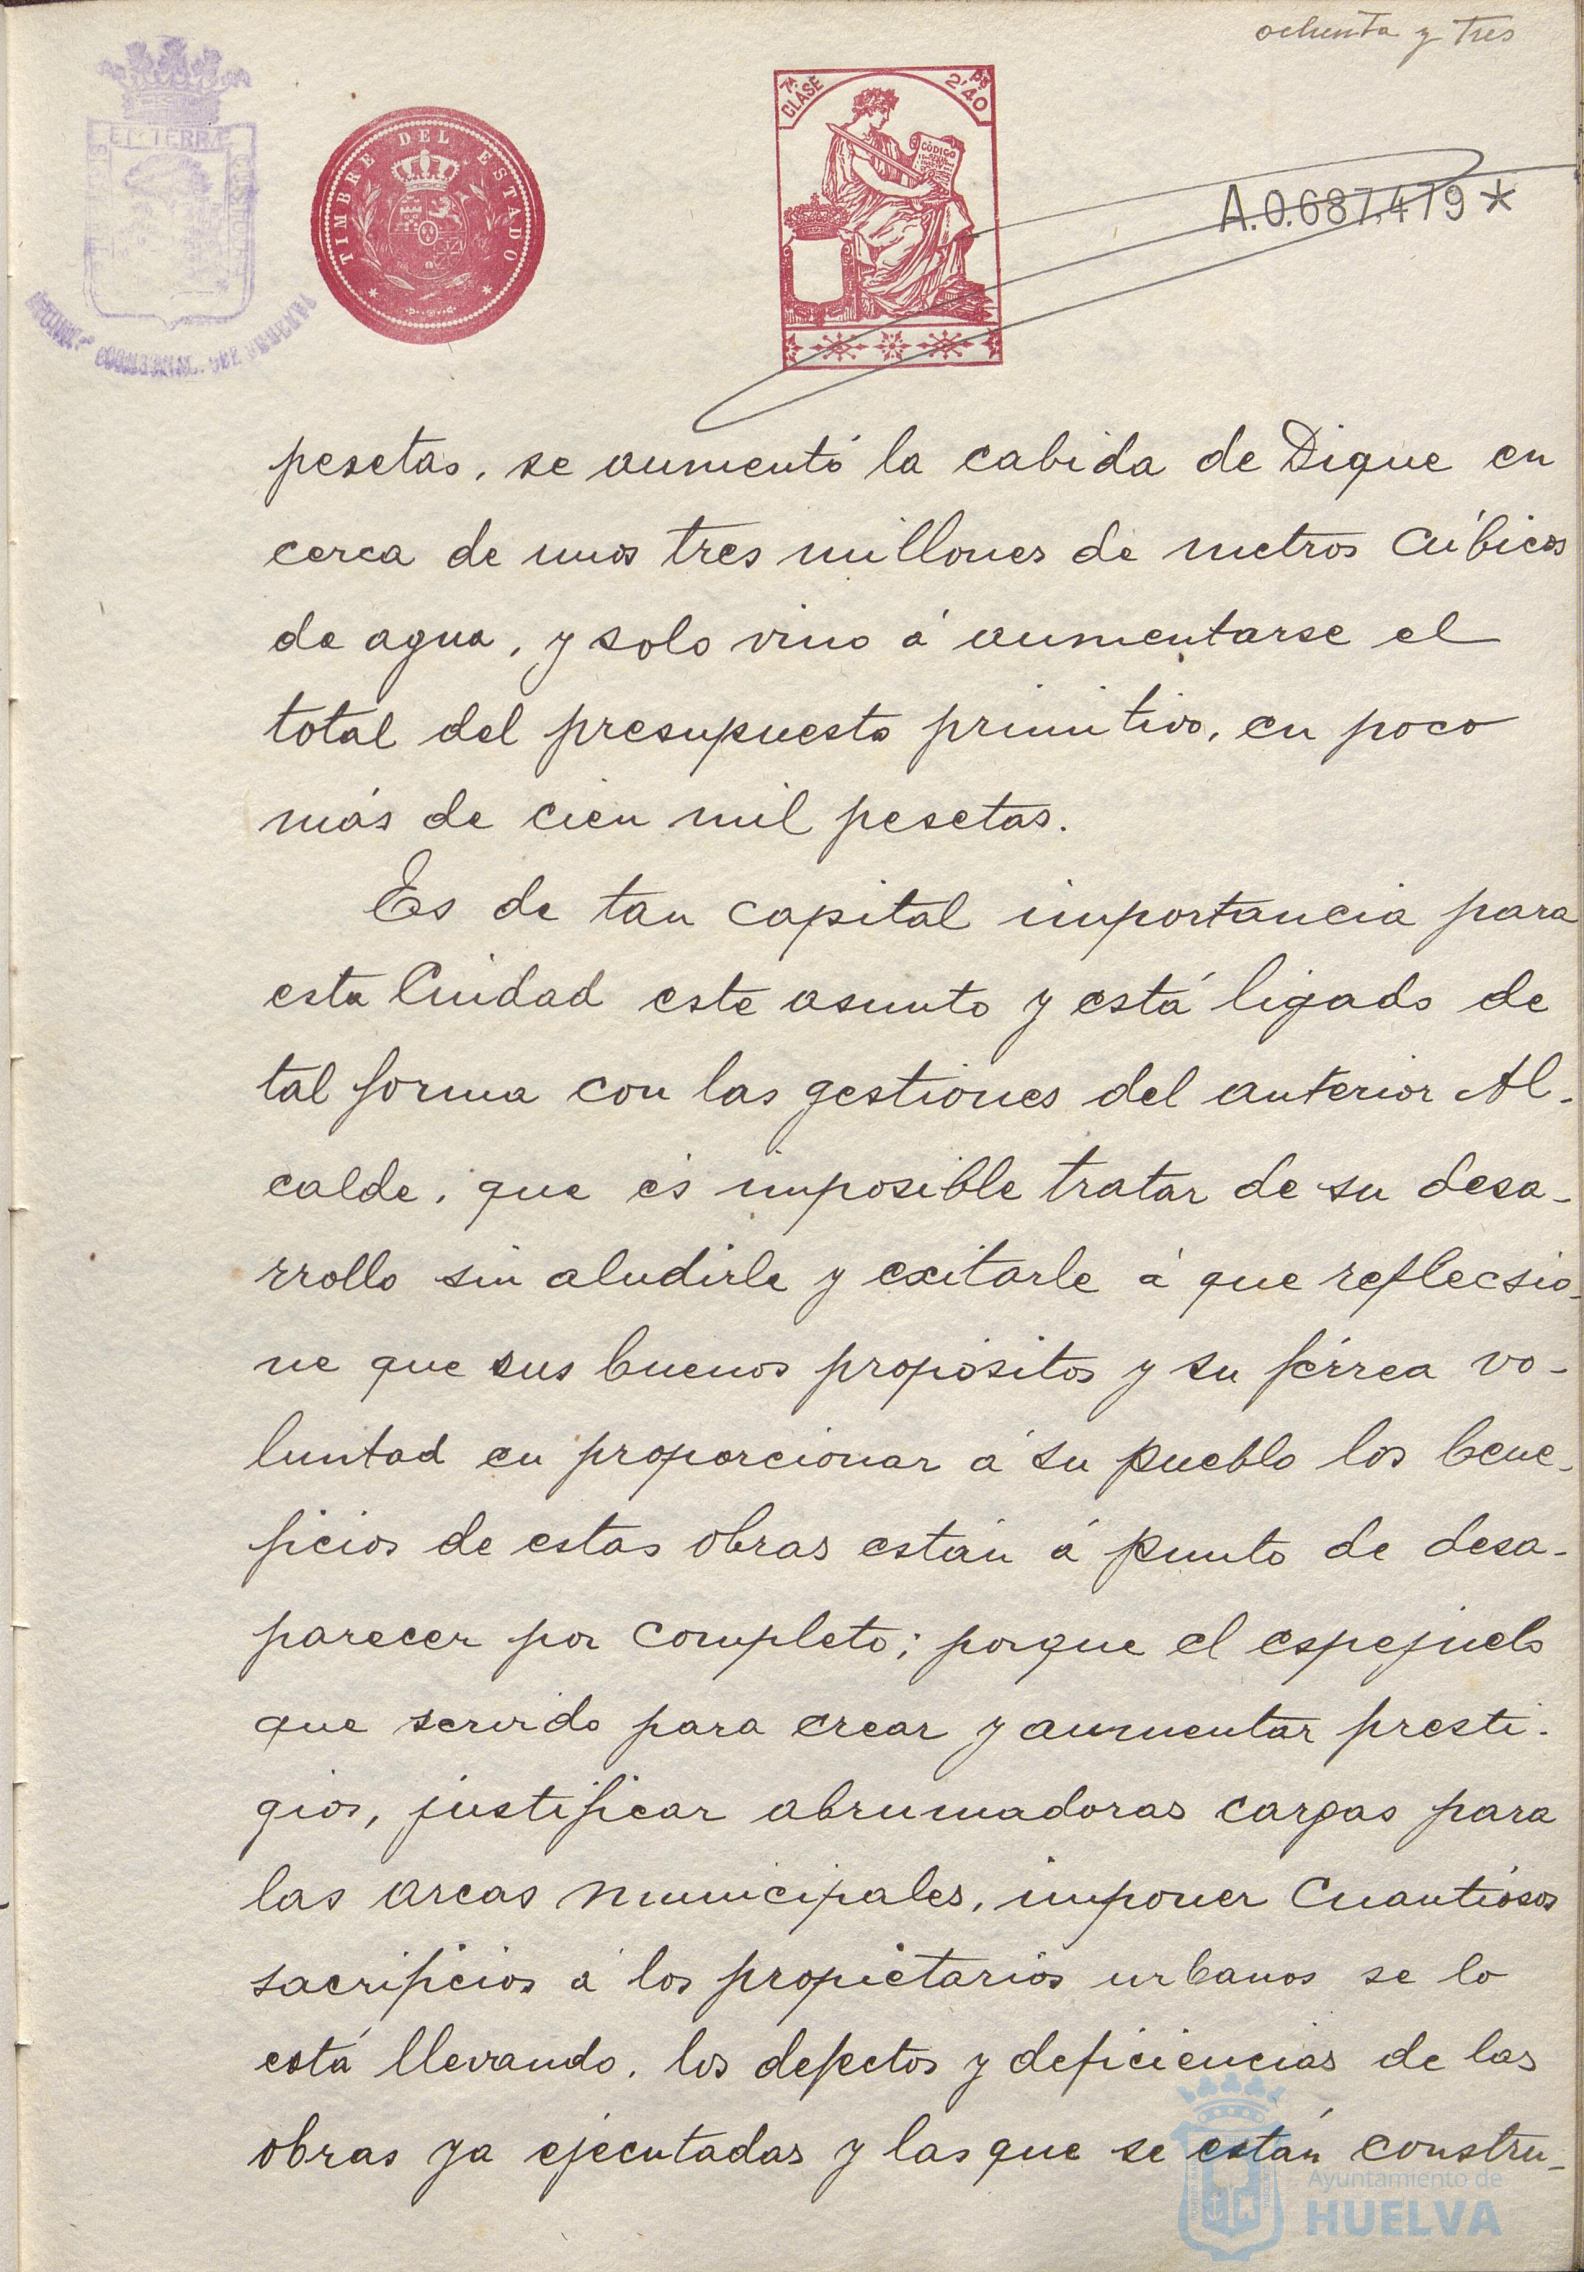 ochenta y tres
TIMBRE DEL ESTADO
7ª CLASE
2,40
CÓDIGO
A.0.687.479*
pesetas, se aumentó la cabida de Dique en
cerca de unos tres millones de metros cúbicos
de agua, y solo vino á aumentarse el
total del presupuesto primitivo, en poco
más de cien mil pesetas.
Es de tan capital importancia para
esta Ciudad este asunto y está ligado de
tal forma con las gestiones del anterior Al-
calde, que és imposible tratar de su desa-
rrollo sin aludirle y exitarle á que reflecsio-
ne que sus buenos propósitos y su férrea vo-
luntad en proporcionar á su pueblo los bene-
ficios de estas obras están á punto de desa-
parecer por completo; porque el espejuelo
que servido para crear y aumentar presti-
gios, justificar abrumadoras cargas para
las arcas municipales, imponer cuantiosos
sacrificios á los propietarios urbanos se lo
está llevando, los defectos y deficiencias de las
obras ya ejecutadas y las que se están constru-
Ayuntamiento de
HUELVA